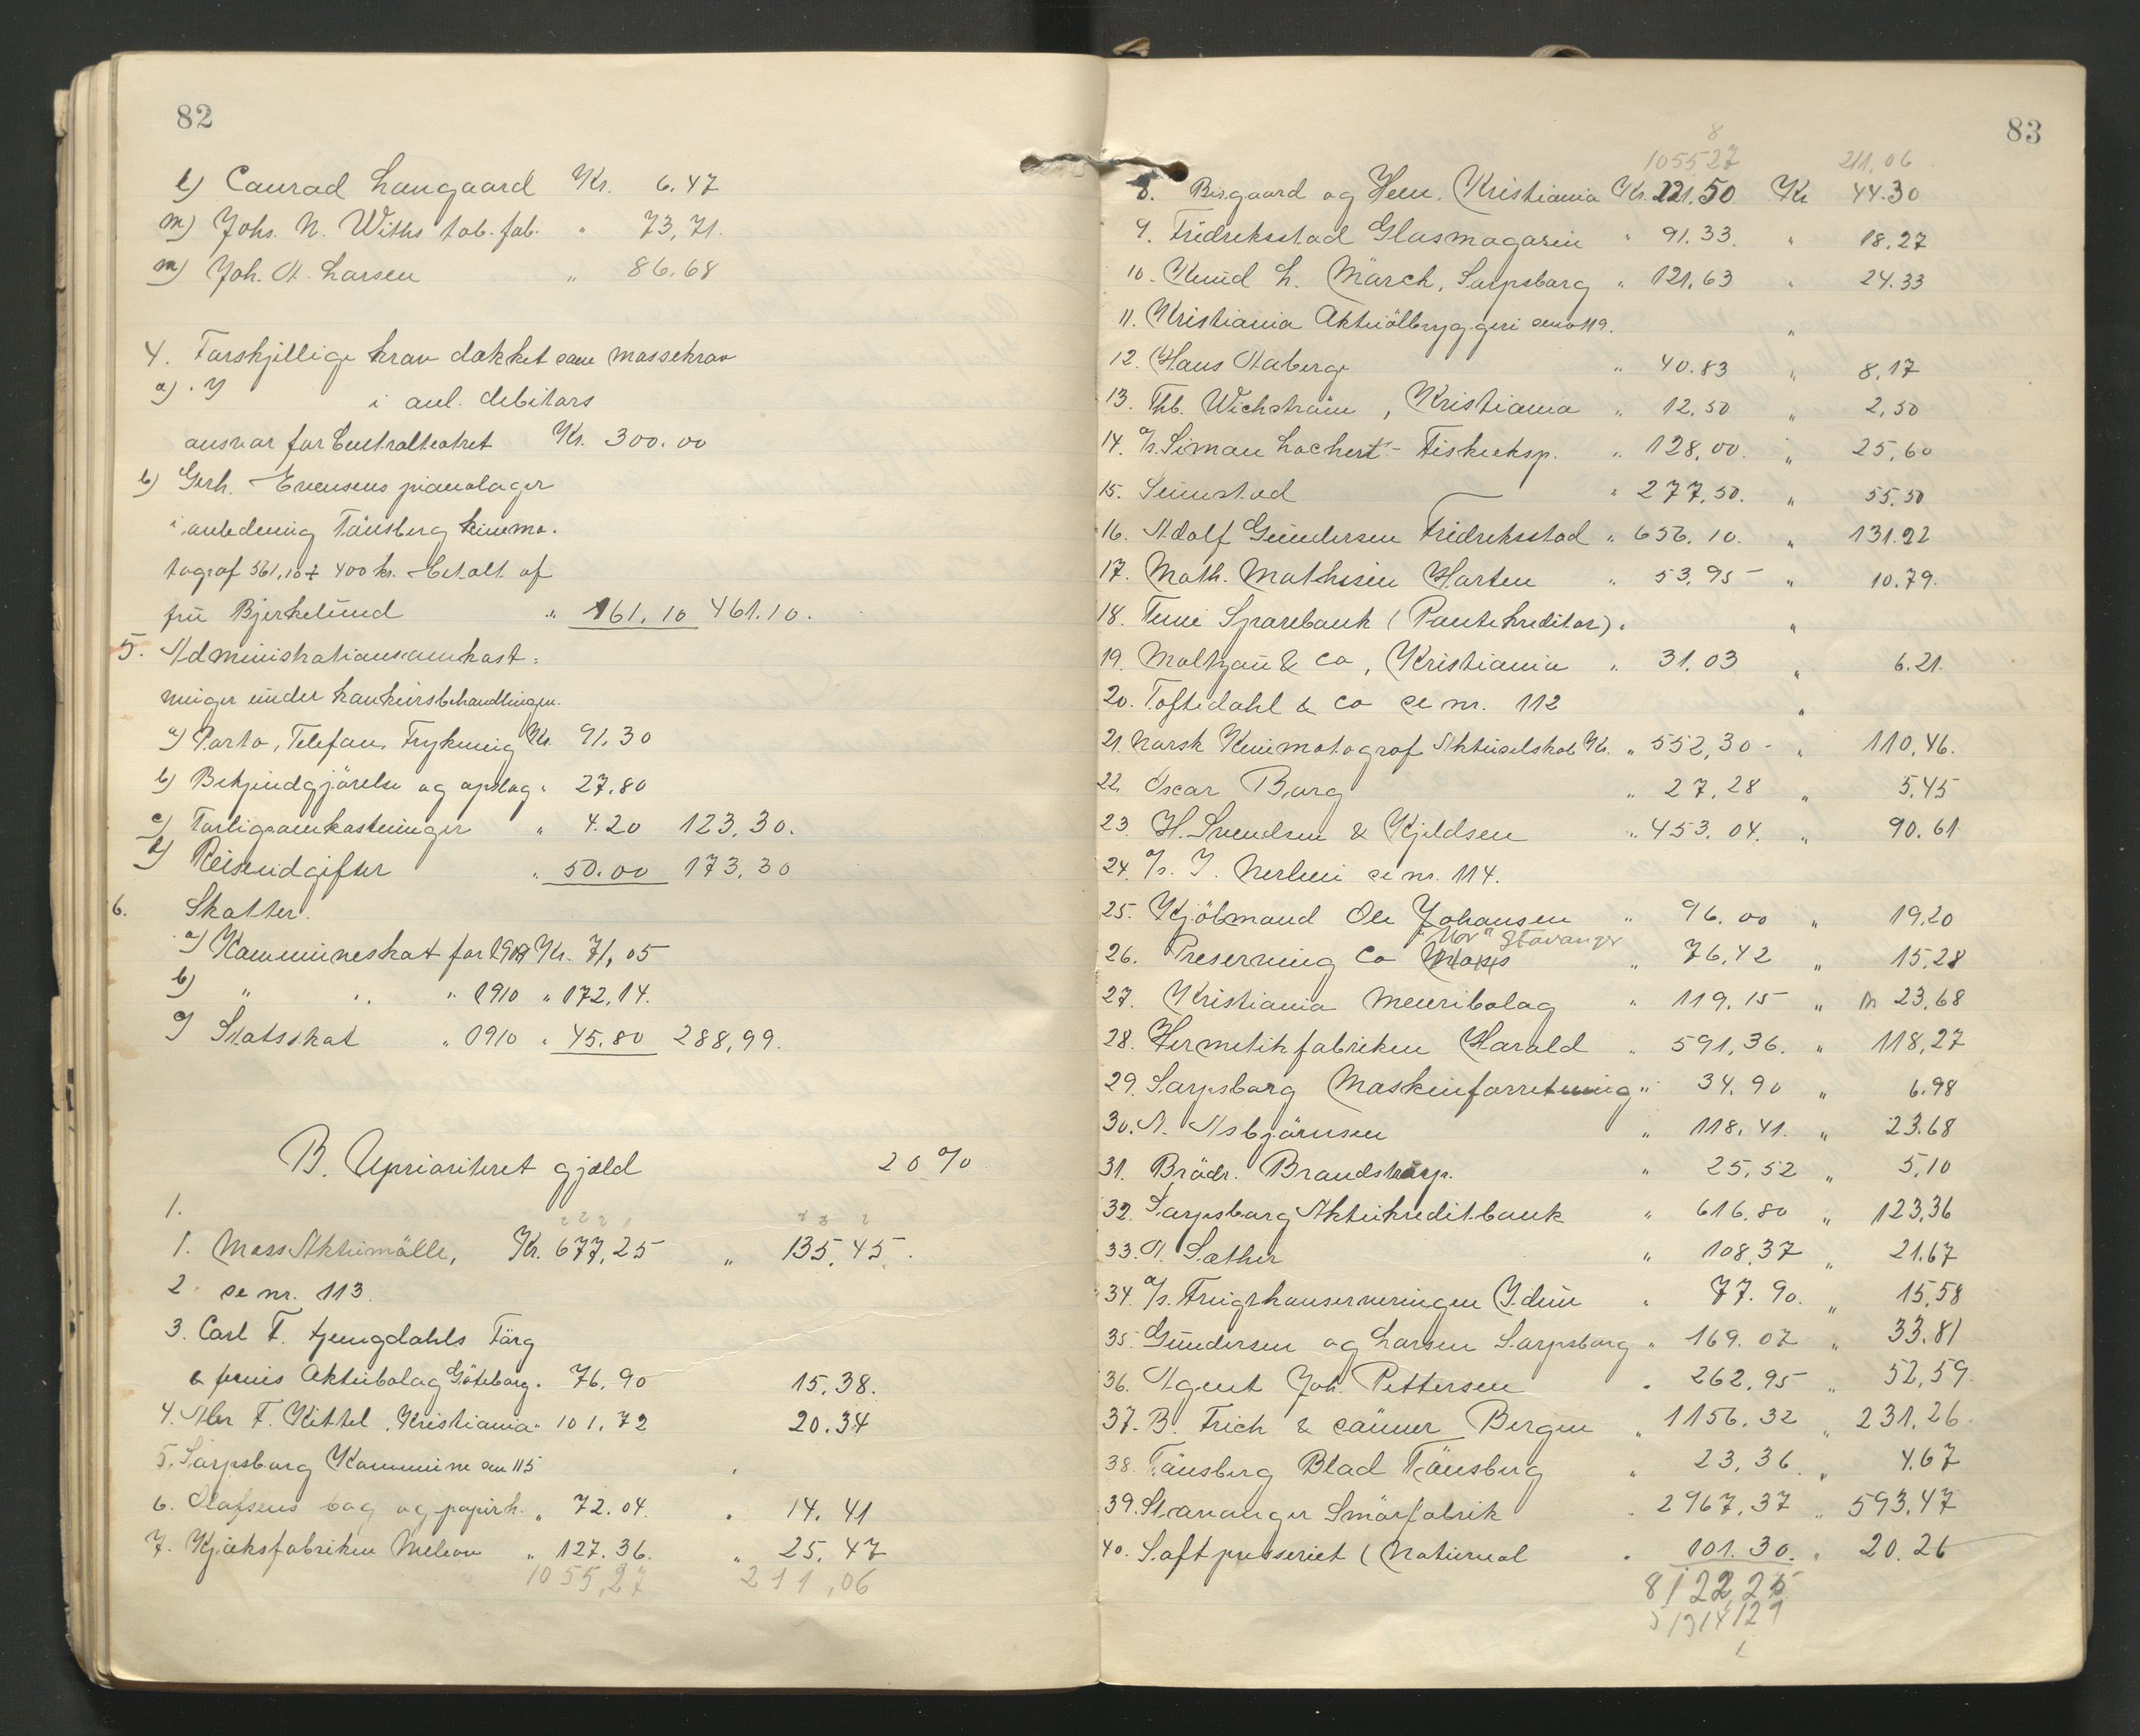 82
l) Conrad Langaard Kr. 6.47
m) Johs. N. Withs tob. fab. " 73,71.
n) Joh. A. Larsen " 86.68
4. Forskjellige krav dækket som massekrav
a)
i anl. debitors
ansvar for Centralteatret Kr. 300.00
b) Gerh. Evensens pianolager
i anledning Tönsberg kinema-
tograf 561,10 ÷ 400 kr. betalt af
fru Bjerkelund " 161,10 461.10.
5. Administrationsomkost-
ninger under konkursbehandlingen.
a) Porto, Telefon, Trykning Kr. 91.30
b) Bekjendgjörelse og opslag " 27.80
c) Forligsomkostninger " 4.20 123.30.
d) Reiseudgifter " 50.00 173,30
6. Skatter.
a) Kommuneskat for 1909 Kr. 71,05
b) " " " 1910 " 172,14.
c) Statsskat " 1910 " 45.80 288,99.
B. Uprioritert gjæld 20 %
1.
1. Moss Aktiemölle, Kr. 677,25 " 135,45.
2. se nr. 113.
3. Carl F. Ljungdahls Färg
& fernis Aktiebolag Göteborg. 76.90 15.38.
4. Alex F. Kittel, Kristiania " 101,72 20.34
5. Sarpsborg Kommune se n 115 "
6. Olafsens bog og papirh. " 72.04. " 14.41
7. Kjæksfabriken Melron " 127.36. " 25.47
1055,27 211,06
83
8
105527 211,06
8. Bisgaard og Hem. Kristiania Kr. 221.50 Kr 44.30
9. Fredriksstad Glasmagasin " 91.33. " 18.27
10. Knud L. Märch, Sarpsborg " 121.63 " 24.33
11. Kristiania Aktieölbryggeri se no 119. "
12. Hans Aaberge " 40.83 " 8,17
13. Thb. Wichström, Kristiania " 12,50 " 2,50
14. A/s. Simon Lochert - Fiskeeksp. " 128,00. " 25,60
15. Seimstad " 277,50. " 55.50
16. Adolf Gundersen Fredriksstad " 656.10. " 131.22
17. Math. Mathisen Horten " 53,95 - " 10.79.
18. Tune Sparebank (Pantekreditor). "
19. Maltzau & Co, Kristiania " 31.03 " 6.21.
20. Toftedahl & Co se nr. 112 "
21. Norsk Kinematograf Aktieselskab Kr. " 552,30 - " 110,46.
22. Oscar Borg " 27.28 " 5,45
23. H. Svendsen & Kjeldsen " 453.04. " 90.61
24. A/s. J. Nerlien se nr. 114.
25. Kjöbmand Ole Johansen " 96.00 " 19,20
"Nor" Stavanger
26. Preserving Co Moss " 76,42 " 15,28
27. Kristiania Meieribolag " 119,15 " 23,68
28. Hermetikfabriken Harald " 591,36. " 118,27
29. Sarpsborg Maskinforretning " 34.90 " 6.98
30. A. Asbjörnsen " 118.41. " 23.68
31. Brödr. Brandstorp. " 25,52 " 5,10
32. Sarpsborg Aktiekreditbank " 616.80 " 123,36
33. A. Sæther " 108,37 " 21.67
34. A/s. Frugtkonserveringen Idun " 77.90. " 15,58
35. Gundersen og Larsen Sarpsborg " 169.07 " 33.81
36. Agent Joh. Pettersen " 262,95 " 52,59.
37. B. Frich & sönner Bergen " 1156.32 " 231,26.
38. Tönsberg Blad Tönsberg " 23,36 " 4.67
39. Stavanger Smörfabrik " 2967,37 " 593,47
40. Saftpresseriet (National " 101.30. " 20.26
8122,25